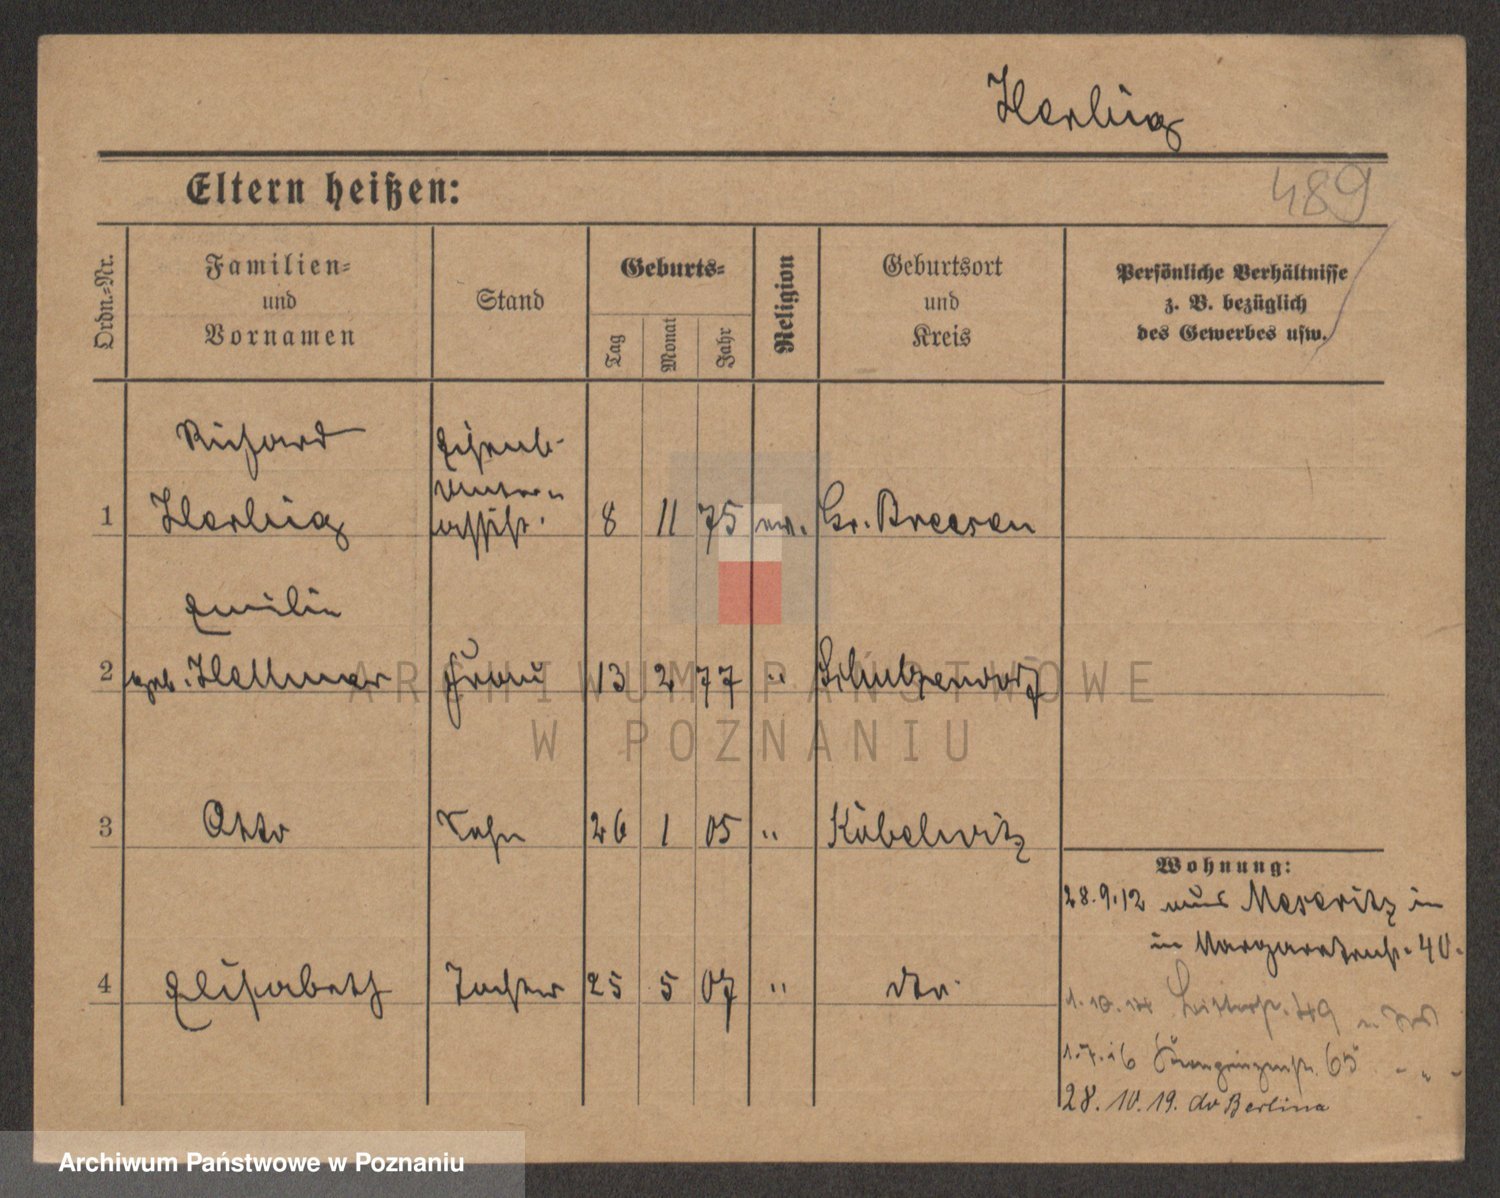 Herbig
Eltern heißen:
489
Ordn.-Nr.
Familien-
und
Vornamen
Stand
Geburts-
Tag
Monat
Jahr
Religion
Geburtsort
und
Kreis
Persönliche Verhältnisse
z. B. bezüglich
des Gewerbes usw.
Richard
Eisenb-
Unter-
1 Herbig assist. 8 11 75 ev. Gr. Breesen
Emilie
2 geb. Hellmer Frau 13 2 77 " Schulzendorf
3 Otto Sohn 26 1 05 " Köbelwitz
Wohnung:
28.9.12 aus Meseritz in
in Margaretenstr. 40.
4 Elisabeth Tochter 25 5 07 " dto.
1.10.14 49
1.7.16 65 - " -
28.10.19. do Berlina
ARCHIWUM PAŃSTWOWE
W POZNANIU
Archiwum Państwowe w Poznaniu